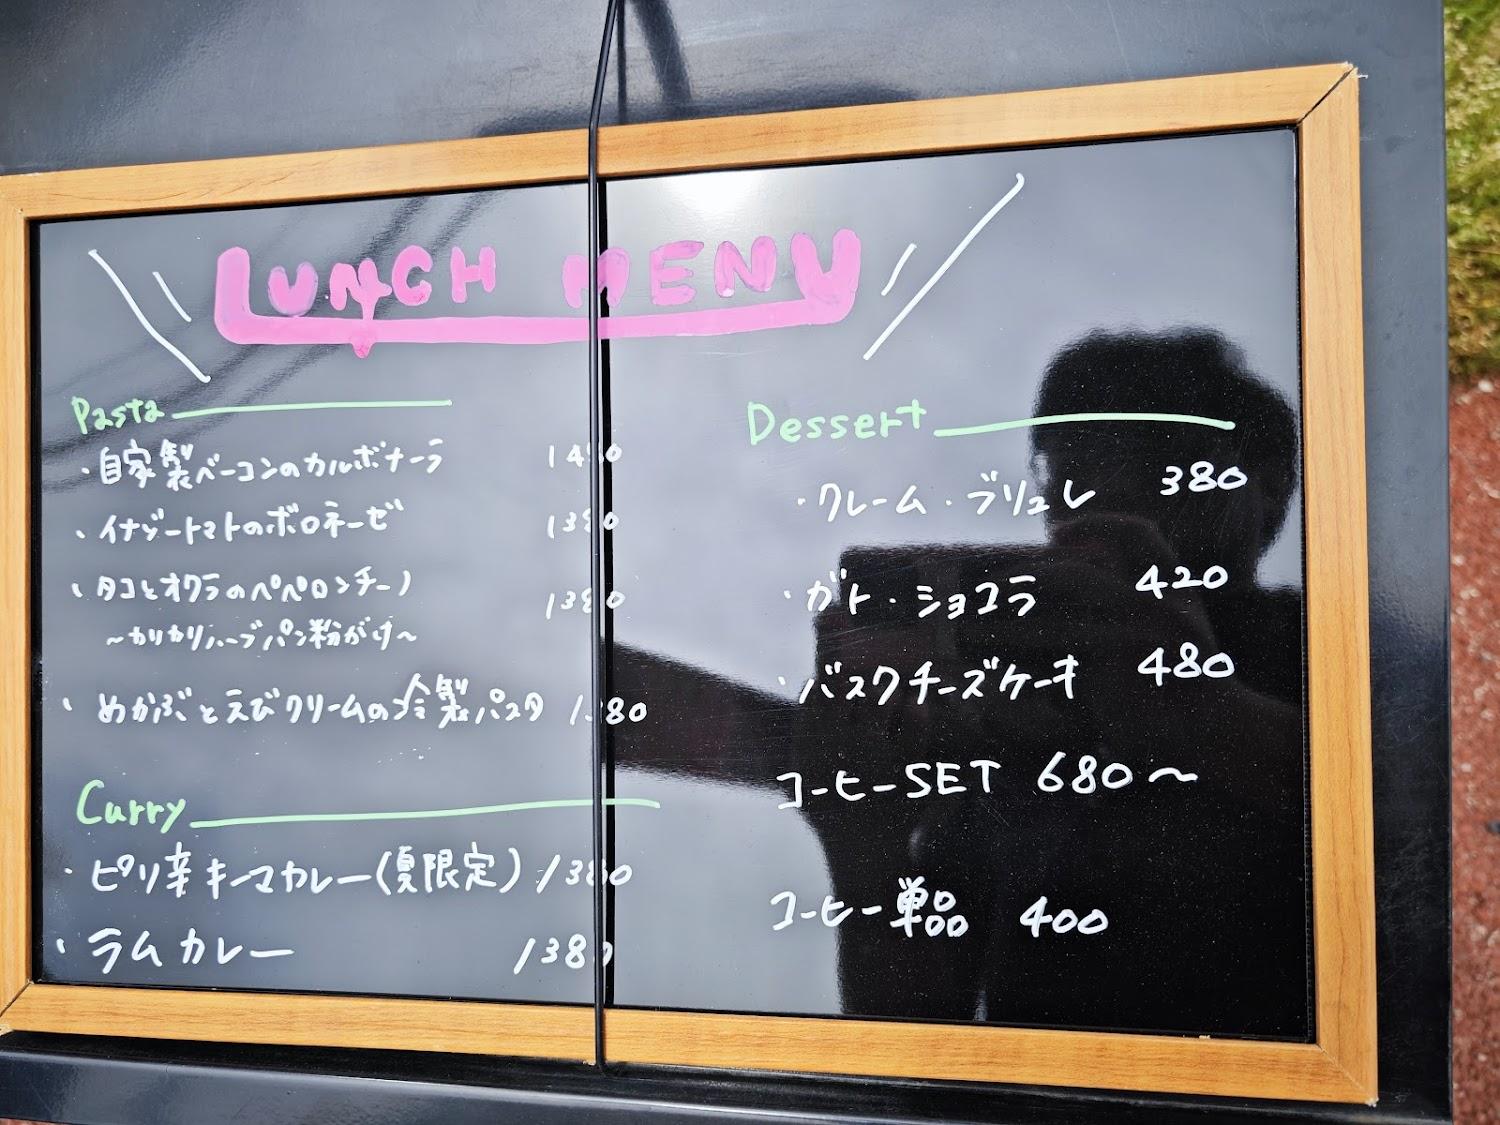 LUNCH MENU
Pasta
・自家製ベーコンのカルボナーラ
・イナゾートマトのボロネーゼ 1380
・タコとオクラのペペロンチーノ 1380
～カリカリハーブパン粉がけ～
・めかぶとえびクリームの冷製パスタ 1380
Curry
・ピリ辛キーマカレー(夏限定) 1380
・ラムカレー 1380
Dessert
・クレーム・ブリュレ 380
・ガト・ショコラ 420
・バスクチーズケーキ 480
コーヒーSET 680～
コーヒー単品 400